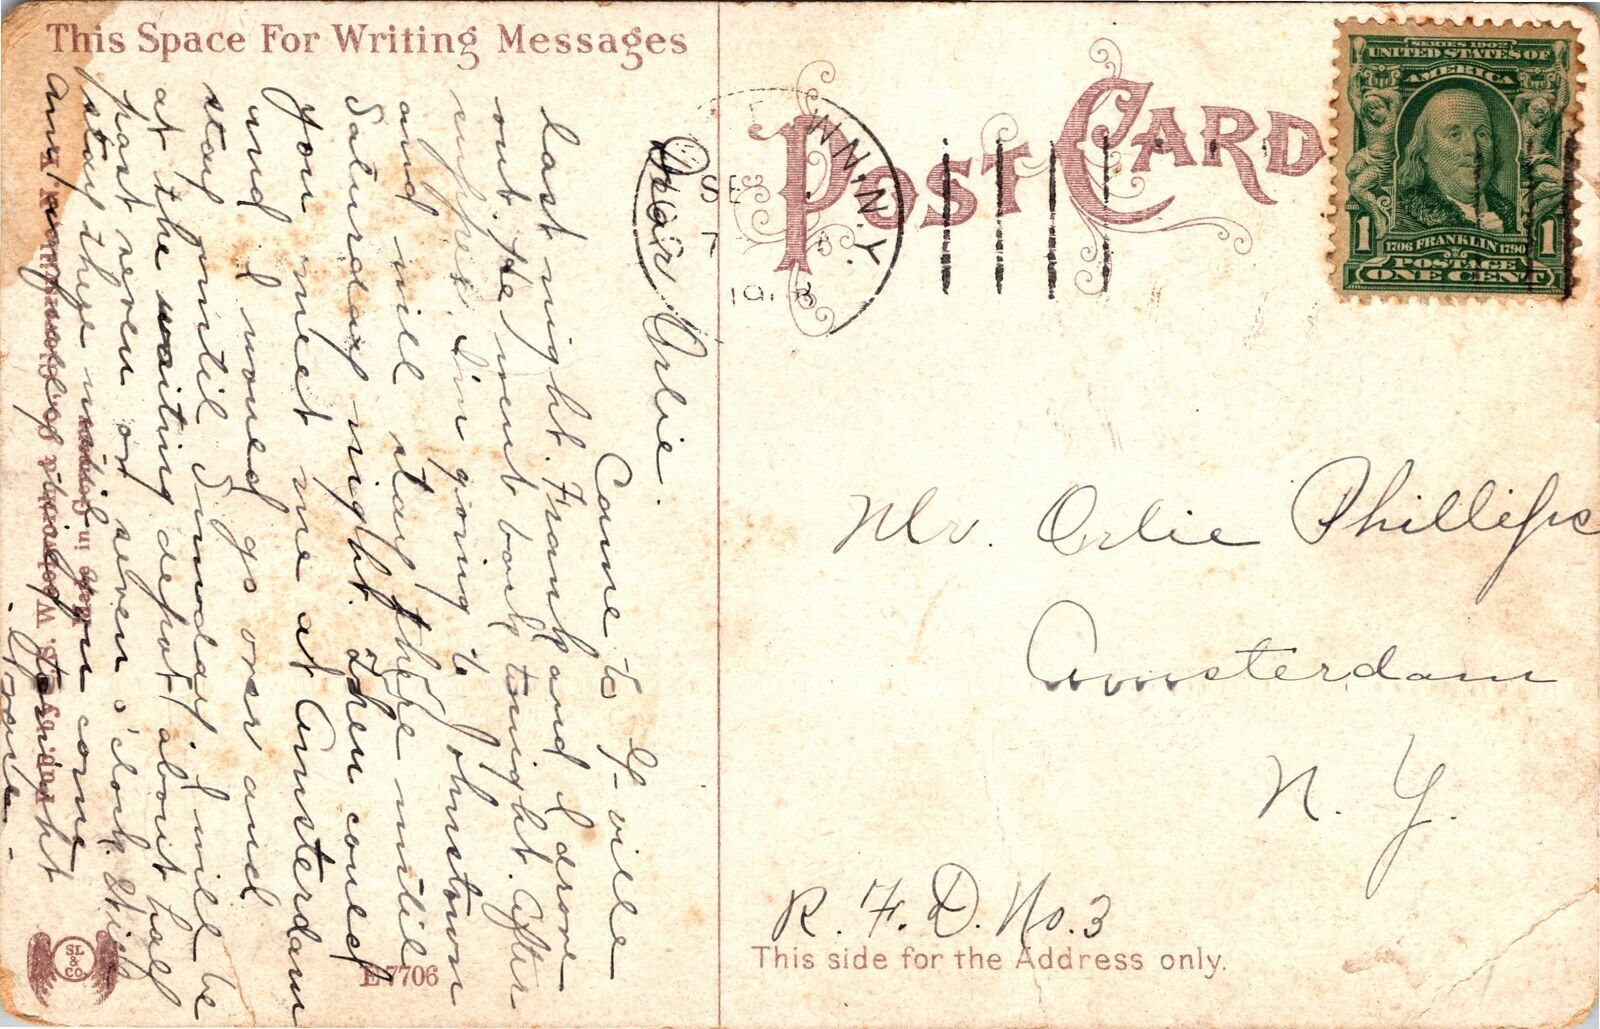 This Space For Writing Messages
POST CARD
SERIES 1902
UNITED STATES OF
AMERICA
1 1706 FRANKLIN 1790 1
POSTAGE
ONE CENT
N.Y.
7
Dear Orlie.
Came to G-ville
last night. Frank and I drove
out. He went back tonight. After
supper I'm going to Johnstown
and will stay there until
Saturday night. Then could
you meet me at Amsterdam
and I would go over and
stay until Sunday. I will be
at the waiting depot about half
past seven or seven o'clock. Will
stay there until you come
am
tonight
Mr. Orlie Phillips
Amsterdam
N. Y.
R. F. D. No. 3
This side for the Address only.
Made in Germany
SL
& Co.
E 7706